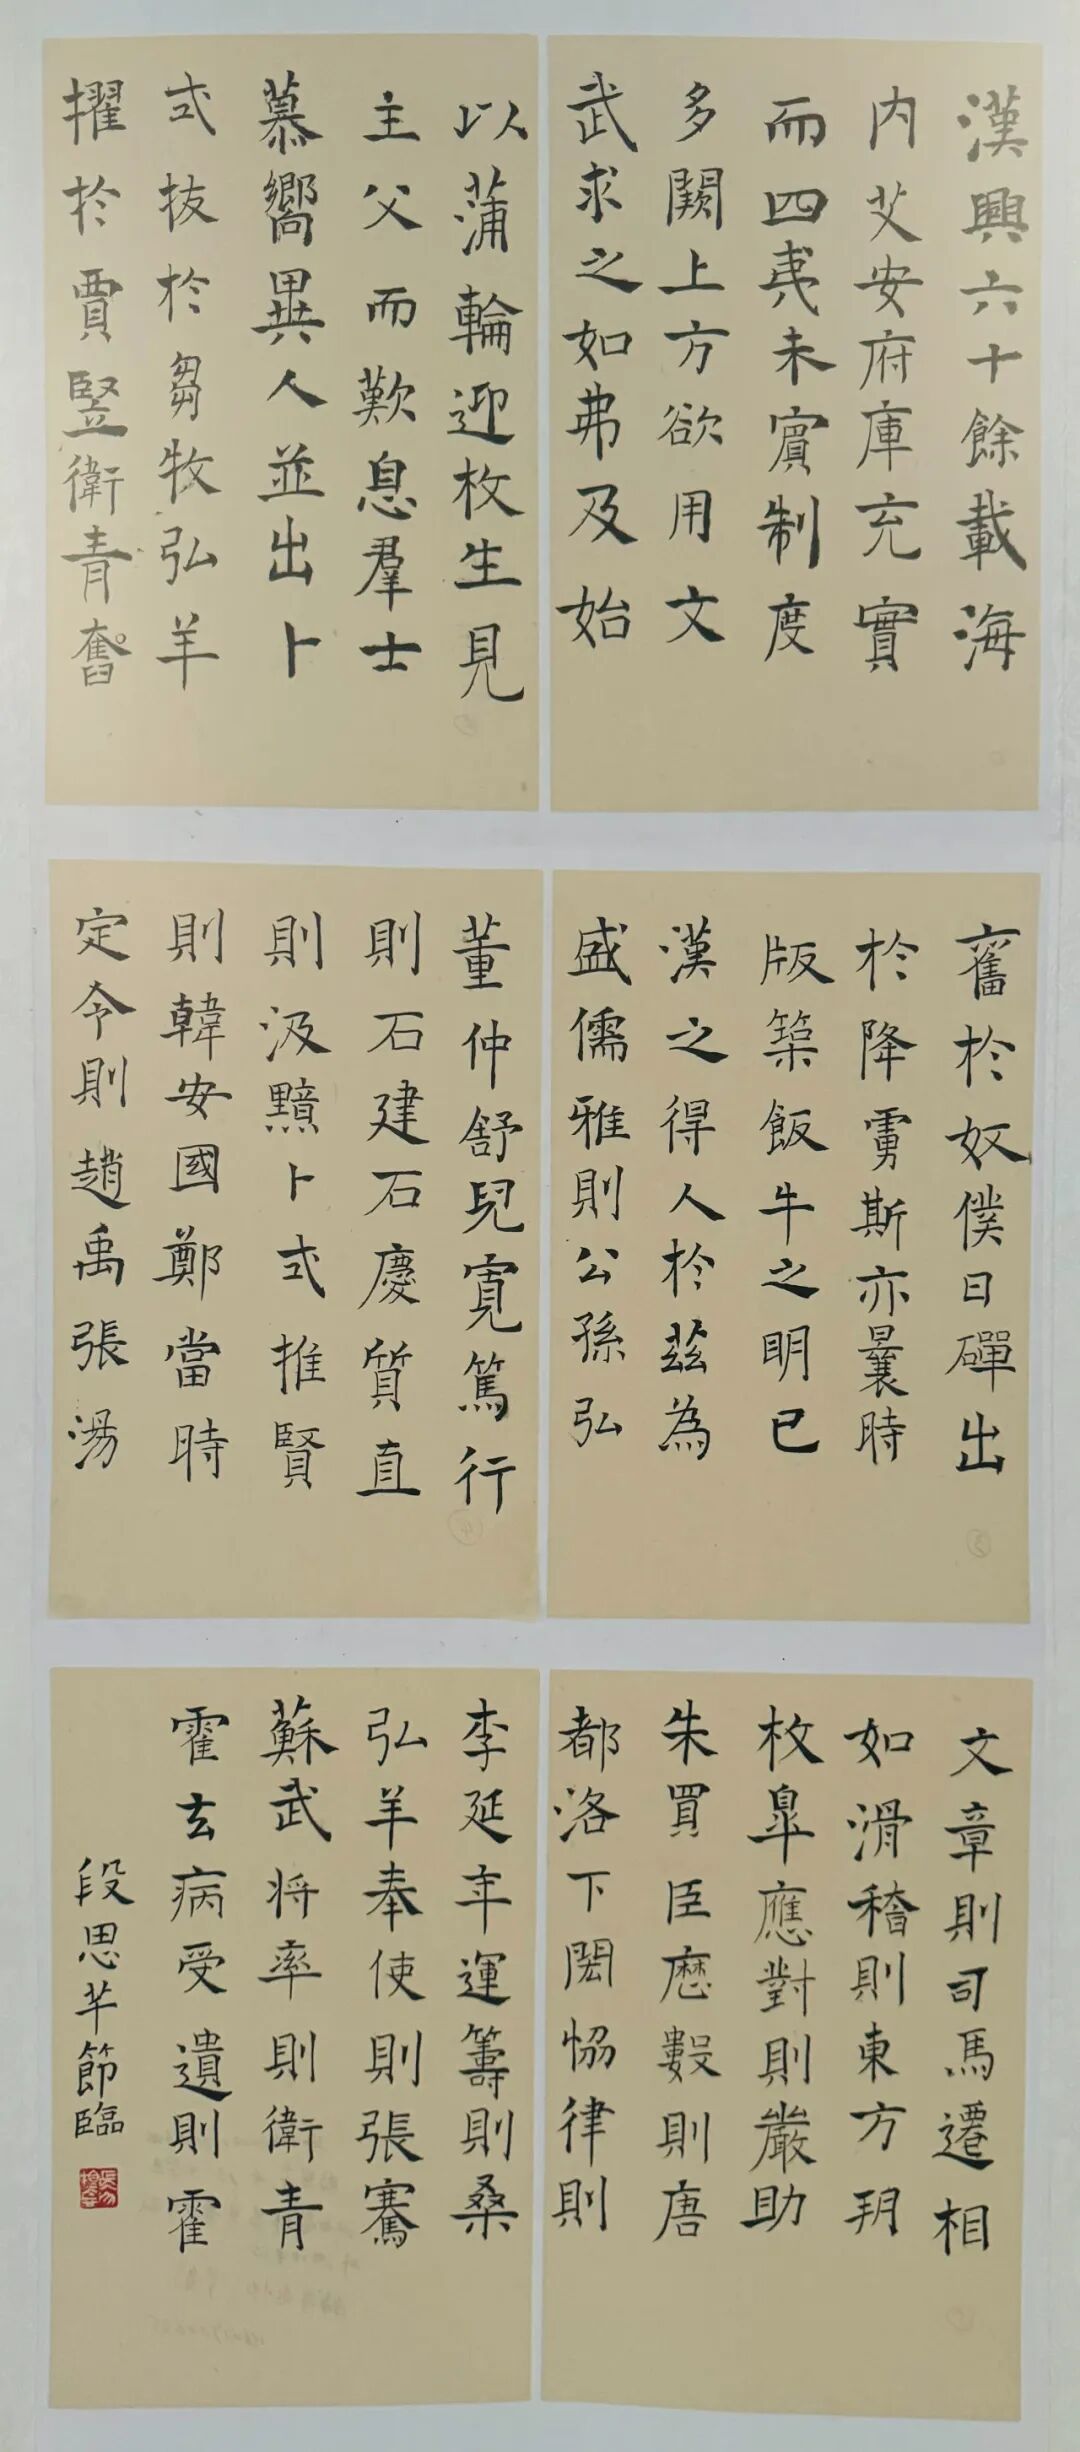 漢興六十餘載海
内艾安府庫充實
而四夷未賓制度
多闕上方欲用文
武求之如弗及始
以蒲輪迎枚生見
主父而歎息羣士
慕嚮異人並出卜
式拔於芻牧弘羊
擢於賈豎衛青奮
奮於奴僕日磾出
於降虜斯亦曩時
版築飯牛之明已
漢之得人於茲為
盛儒雅則公孫弘
董仲舒兒寬篤行
則石建石慶質直
則汲黯卜式推賢
則韓安國鄭當時
定令則趙禹張湯
文章則司馬遷相
如滑稽則東方朔
枚皐應對則嚴助
朱買臣歷數則唐
都洛下閎恊律則
李延年運籌則桑
弘羊奉使則張騫
蘇武将率則衛青
霍去病受遺則霍
段思芊節臨